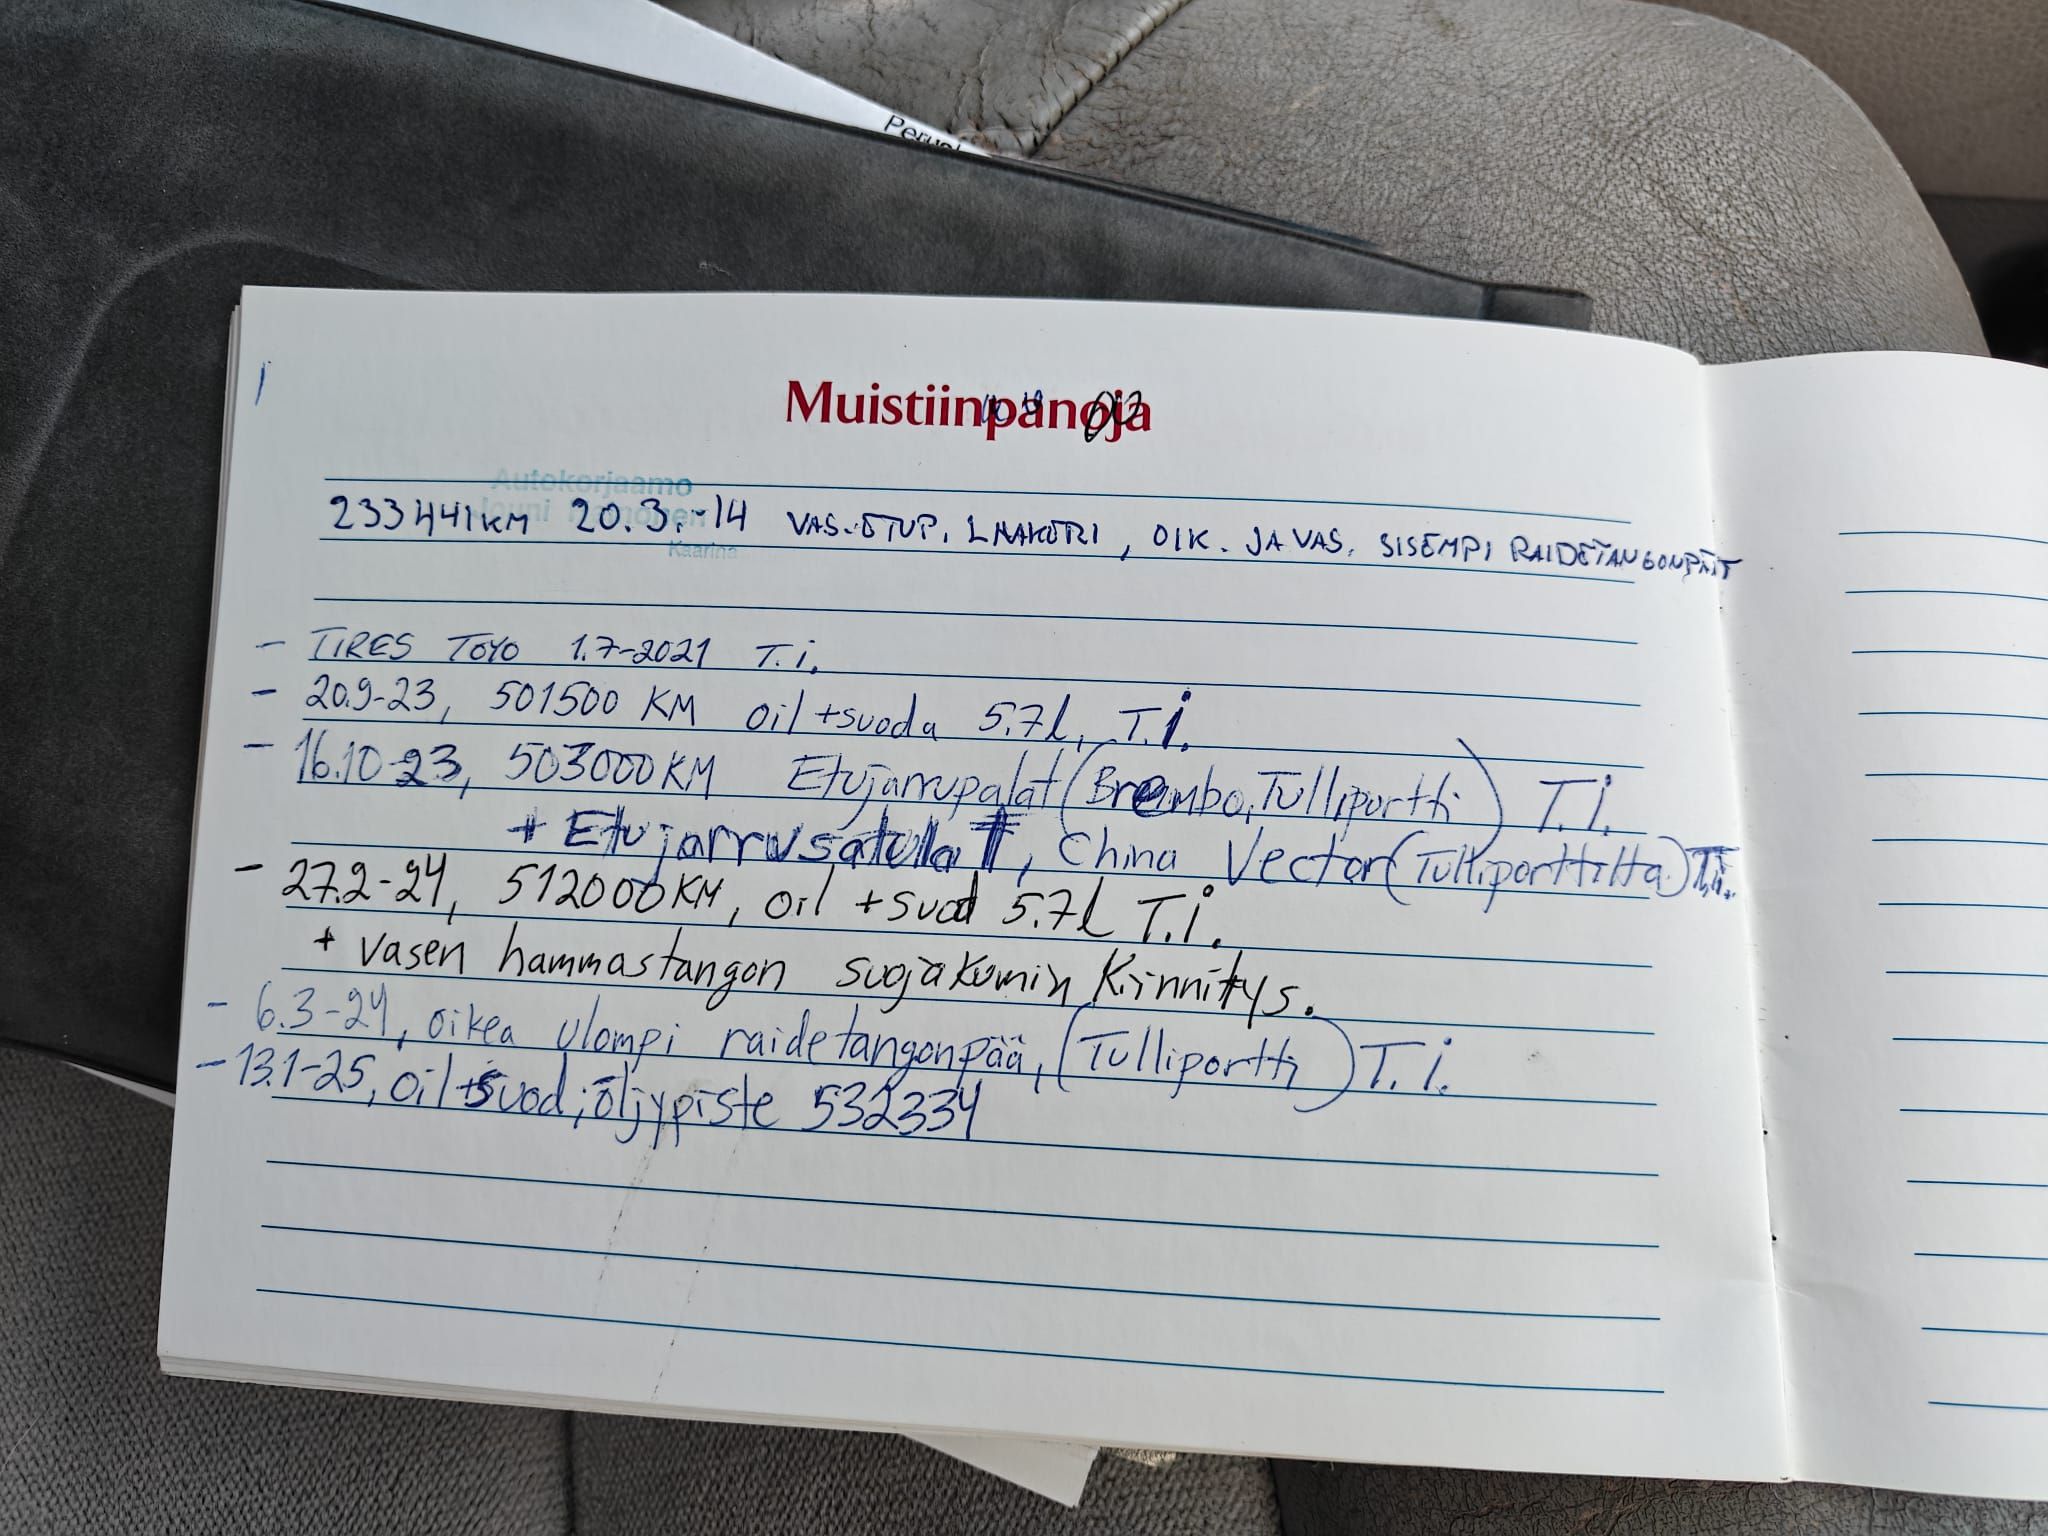 Perus
Muistiinpanoja
Autokorjaamo
Jouni
Kaarina
233441KM 20.3.-14 VAS. ETUP. LAAKERI, OIK. JA VAS. SISEMPI RAIDETANGONPÄÄT
- TIRES TOYO 1.7-2021 T.i.
- 20.9-23, 501500 KM oil +suoda 5.7l, T.i.
- 16.10-23, 503000KM Etujarrupalat (Brembo, Tulliportti) T.i.
+ Etujarrusatulat, China Vector (Tulliporttilta) T.i.
- 27.2-24, 512000KM, oil +suod 5.7l T.i.
+ vasen hammastangon suojakumin kiinnitys.
- 6.3-24, oikea ulompi raidetangonpää, (Tulliportti) T.i.
- 13.1-25, oil+suod, öljypiste 532334